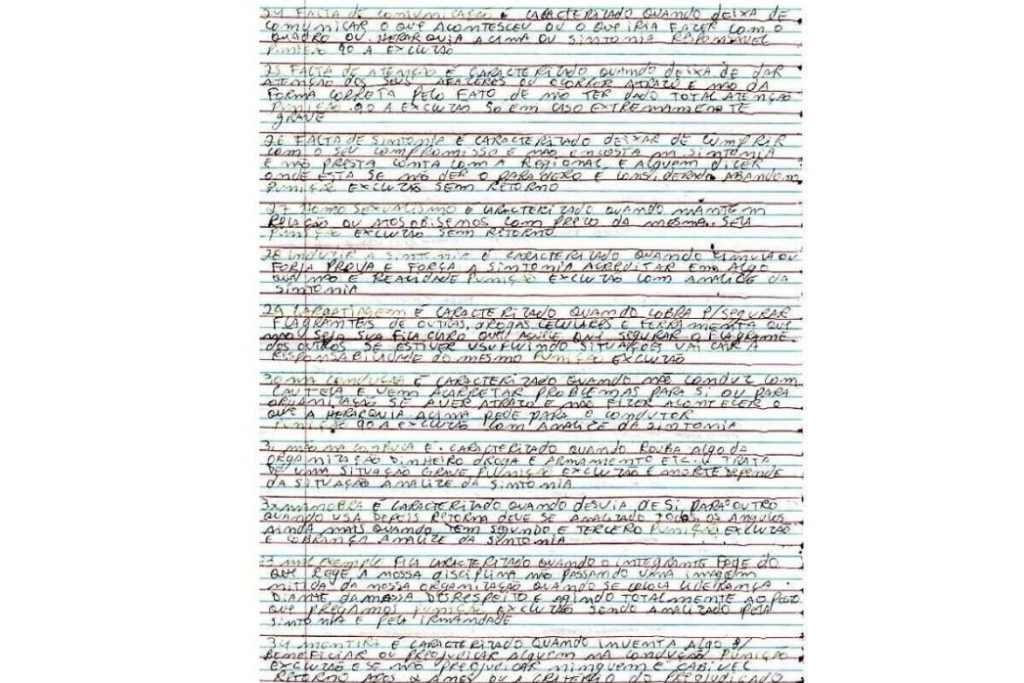 24 FALTA DE COMUNICAÇÃO É CARACTERIZADO QUANDO DEIXA DE
COMUNICAR O QUE ACONTESCEU OU O QUE IRIA FAZER COM O
QUADRO OU HERARQUIA ACIMA OU SINTONIA RESPONSAVEL
PUNIÇÃO 90 A EXCLUZÃO
25 FALTA DE ATENÇÃO É CARACTERIZADO QUANDO DEIXA DE DAR
ATENÇÃO DOS SEUS AFAZERES OU OCORRER ATRAZO E NÃO DA
FORMA CORRETA PELO FATO DE NÃO TER DADO TOTAL ATENÇÃO
PUNIÇÃO 90 A EXCLUZÃO SO EM CASO EXTREMAMENTE
GRAVE
26 FALTA DE SINTONIA É CARACTERIZADO DEIXAR DE CUMPRIR
COM O SEU COMPROMISSO E NÃO ENCOSTA NA SINTONIA
E NÃO PRESTA CONTA COM A REGIONAL E ALGUEM DICER
ONDE ESTA SE NÃO DER O PARADERO É CONSIDERADO ABANDONO
PUNIÇÃO EXCLUZÃO SEM RETORNO
27 HOMO SEXUALISMO É CARACTERIZADO QUANDO MANTEM
RELAÇÃO OU ATOS OBISENOS COM PRECO DA MESMA SEIA
PUNIÇÃO EXCLUZÃO SEM RETORNO
28 INDUZIR A SINTONIA É CARACTERIZADO QUANDO SIMULA OU
FORJA PROVA E FORÇA A SINTONIA ACREDITAR EM ALGO
QUE NÃO É REALIDADE PUNIÇÃO EXCLUZÃO COM ANALIZE DA
SINTONIA
29 LARAPIAGEM É CARACTERIZADO QUANDO COBRA P/ SEGURAR
FLAGRANTES DE OUTROS, DROGAS CELULARES E FERRAMENTA QUE
NÃO SEJA SUA FICA CLARO QUE AQUELE QUE SEGURAR O FLAGRANTE
DOS OUTROS SE ESTIVER USUFLUINDO SITUAÇÕES VAI CAIR A
RESPONSABILIDADE DO MESMO PUNIÇÃO EXCLUZÃO
30 MA CONDUÇÃO É CARACTERIZADO QUANDO NÃO CONDUZ COM
CAUTELA E VEM ACARRETAR PROBLEMAS PARA SI OU PARA
ORGANIZAÇÃO SE AVER ATRAZO E NÃO FIZER ACONTECER O
QUE A HERARQUIA ACIMA PEDE PARA O CONDUTOR
PUNIÇÃO 90 A EXCLUZÃO COM ANALIZE DA SINTONIA
31 MÃO NA CUMBUCA É CARACTERIZADO QUANDO ROUBA ALGO DA
ORGANIZAÇÃO DINHEIRO DROGA E ARMAMENTO ETC.. TRATA
DE UMA SITUAÇÃO GRAVE PUNIÇÃO EXCLUZÃO E MORTE DEPENDE
DA SITUAÇÃO ANALIZE DA SINTONIA
32 MANOBRA É CARACTERIZADO QUANDO DESVIA DE SI PARA OUTRO
QUANDO USA DEPOIS RETORNA DEVE SE ANALIZADO TODOS OS ANGULOS
AINDA MAIS QUANDO TEM SEGUNDO E TERCERO PUNIÇÃO EXCLUZÃO
E COBRANÇA ANALIZE DA SINTONIA
33 MAL EXEMPLO FICA CARACTERIZADO QUANDO O INTEGRANTE FOGE DO
QUE REGE A NOSSA DISCIPLINA NÃO PASSANDO UMA IMAGEM
NITIDA DA NOSSA ORGANIZAÇÃO QUANDO SE COLOCA LIDERANÇA
DIANTE DA MASSA DESRESPEITO E AGINDO TOTALMENTE AO POSTO
QUE PREGAMOS PUNIÇÃO EXCLUZÃO SENDO ANALIZADO PELA
SINTONIA E PELA IRMANDADE
34 MENTIRA É CARACTERIZADO QUANDO INVENTA ALGO P/
BENEFICIAR OU PREOJUDICAR ALGUEM MA CONDUÇÃO PUNIÇÃO
EXCLUZÃO E SE NÃO PREOJUDICAR NINGUEM É CABIVEL
RETORNO APOS 2 ANOS OU A CRITERIO DO PREOJUDICADO